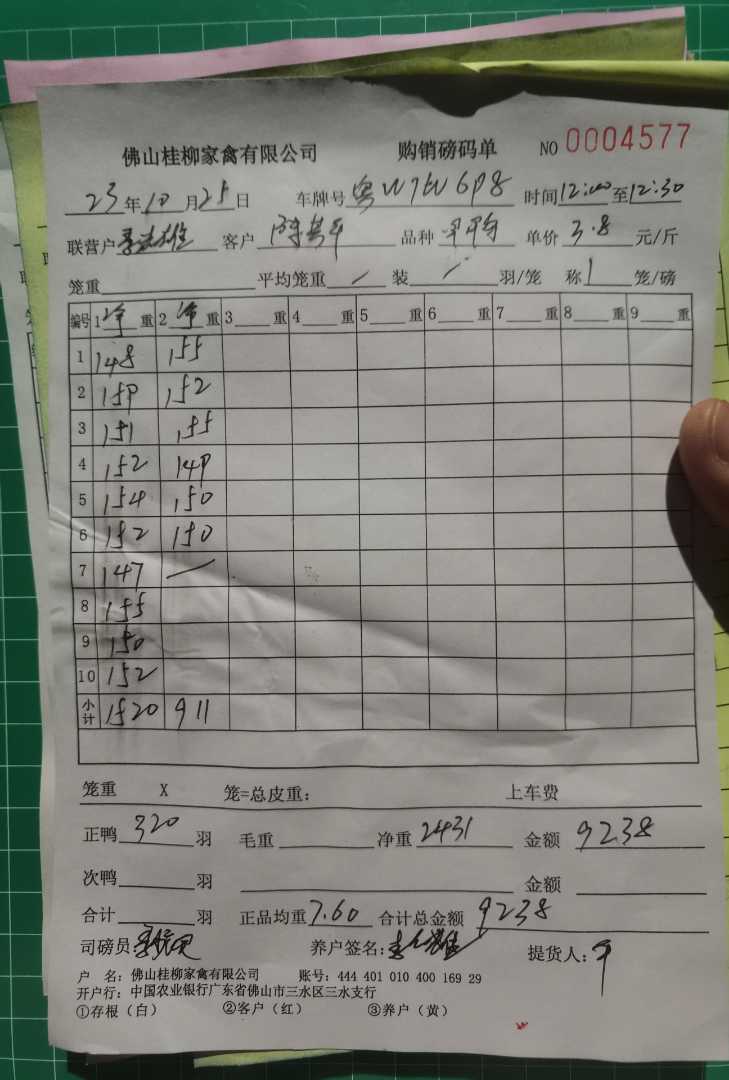 佛山桂柳家禽有限公司 购销磅码单 NO 0004577
23年10月25日 车牌号 粤W7W698 时间12:00至12:30
联营户 客户 品种 单价 3.8 元/斤
笼重 平均笼重 / 装 / 羽/笼 称 1 笼/磅
编号 1净重 2净重 3重 4重 5重 6重 7重 8重 9重
1 148 155
2 159 152
3 151 155
4 152 149
5 154 150
6 152 150
7 147 —
8 155
9 150
10 152
小计 1520 911
笼重 X 笼=总皮重: 上车费
正鸭 320 羽 毛重 净重 2431 金额 9238
次鸭 羽 金额
合计 羽 正品均重 7.60 合计总金额 9238
司磅员: 养户签名: 提货人:
户 名: 佛山桂柳家禽有限公司 账号: 444 401 010 400 169 29
开户行: 中国农业银行广东省佛山市三水区三水支行
①存根(白) ②客户(红) ③养户(黄)